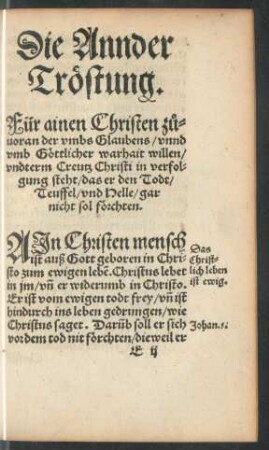 Die Annder
Tröstung.
Für ainen Christen zů-
uoran der vmbs Glaubens/vnnd
vmb Göttlicher warhait willen/
vndterm Creutz Christi in verfol-
gung steht/das er den Todt/
Teuffel/vnd Helle/gar
nicht sol förchten.
AIn Christen mensch
ist auß Gott geboren in Chri-
sto zum ewigen lebē. Christus lebet
in jm/vñ er widerumb in Christo.
Er ist vom ewigen todt frey/vñ ist
hindurch ins leben gedrungen/wie
Christus saget. Darũb soll er sich
vordem tod nit förchten/dieweil er
E ij
Das
Christ-
lich leben
ist ewig.
Johan. 5.